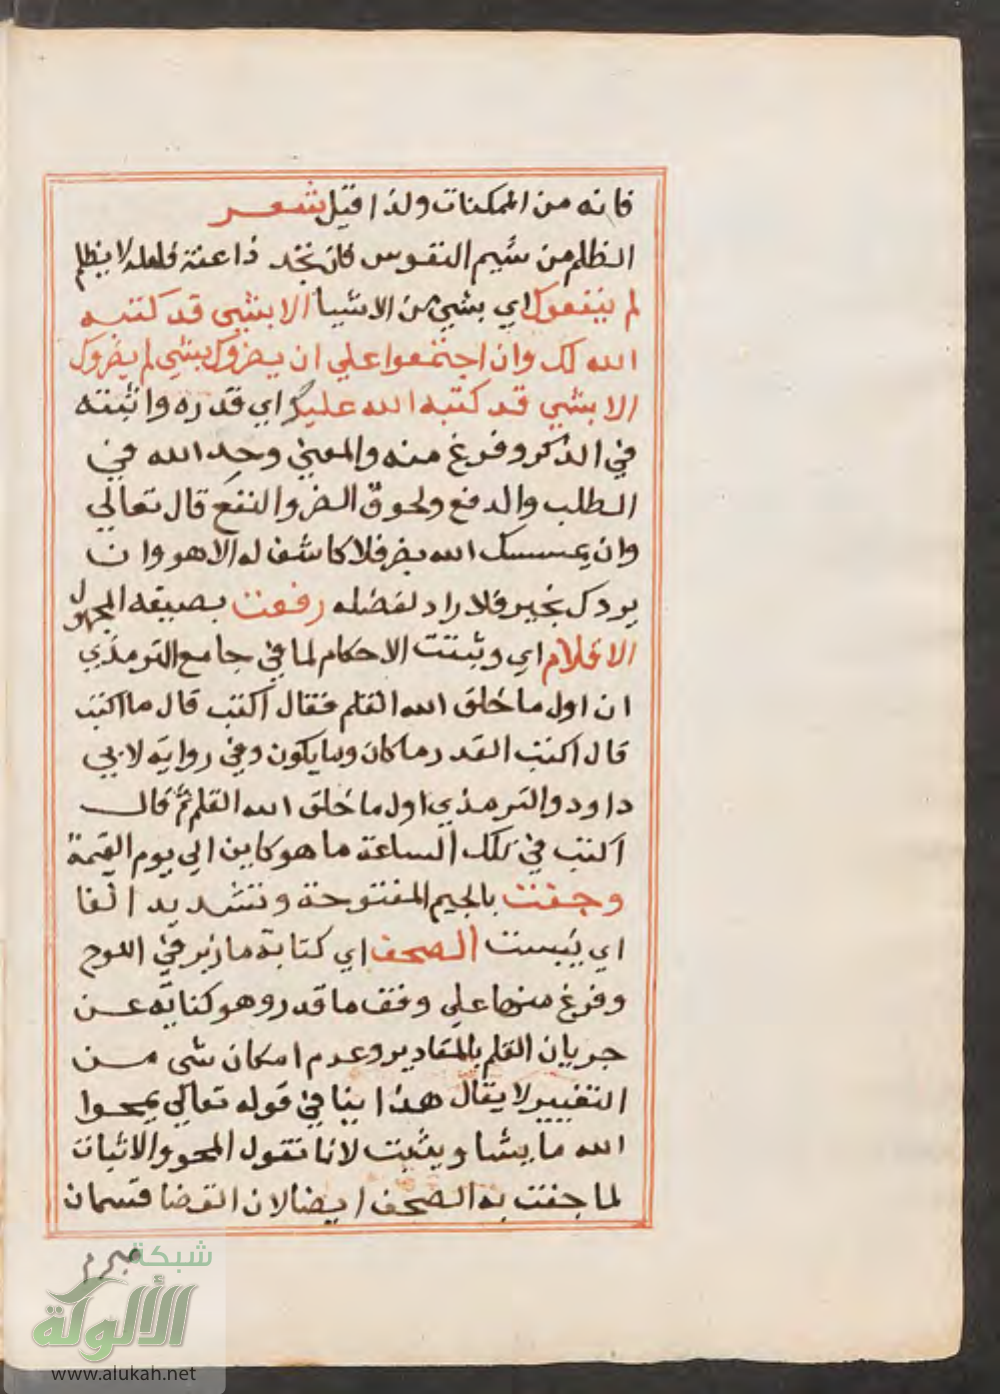 فانه من الممكنات ولذا قيل شعر
الظلم من شيم النفوس فان تجد ذا عفة فلعله لا يظلم
لم ينفعوك اي بشي من الاشيا الا بشي قد كتبه
الله لك وان اجتمعوا علي ان يضروك بشي لم يضروك
الا بشي قد كتبه الله عليك اي قدره واثبته
في الذكر وفرغ منه والمعني وحد الله في
الطلب والدفع ولحوق الضر والنفع قال تعالي
وان يمسسك الله بضر فلا كاشف له الا هو وان
يردك بخير فلا راد لفضله رفعت بصيغه المجهول
الاقلام اي وثبتت الاحكام لما في جامع الترمذي
ان اول ما خلق الله القلم فقال اكتب قال ما اكتب
قال اكتب القدر ما كان وما يكون وفي رواية لابي
داود والترمذي اول ما خلق الله القلم ثم قال
اكتب في تلك الساعة ما هو كاين الي يوم القيمة
وجفت بالجيم المفتوحة وتشديد الفا
اي يبست الصحف اي كتابة ما زبر في اللوح
وفرغ منها علي وفق ما قدر وهو كناية عن
جريان القلم بالمقادير وعدم امكان شي من
التغيير لا يقال هذا ينافي قوله تعالي يمحوا
الله ما يشا ويثبت لانا نقول المحو والاثبات
لما جفت به الصحف ايضا لان القضا قسمان
مبرم
شبكة
الألوكة
www.alukah.net